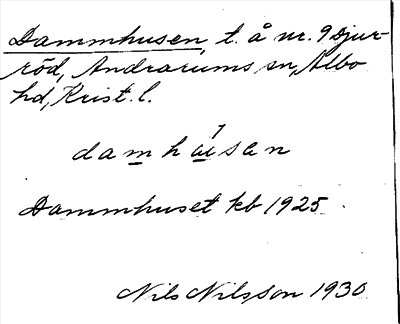 Dammhusen, t. å nr. 9 Djur-
röd, Andrarums sn, Albo
hd, Krist. l.
damhusen
Dammhuset kb 1925.
Nils Nilsson 1930